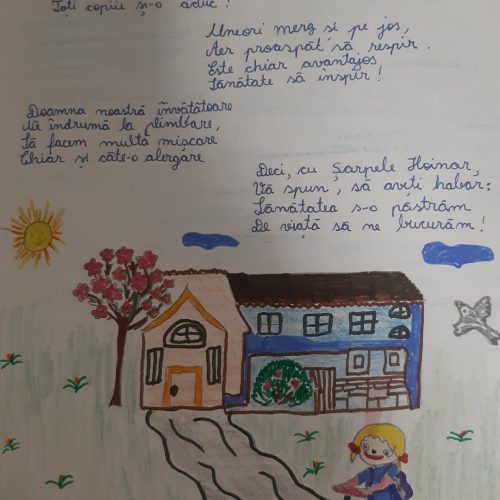 Toți copiii și-o aduc!
Uneori merg si pe jos,
Aer proaspăt să respir.
Este chiar avantajos
Sănătate să inspir!
Doamna noastră învățătoare
Ne îndrumă la plimbare,
Să facem multă mișcare
Chiar și câte-o alergare
Deci, cu Șarpele Hoinar,
Vă spun, să aveți habar:
Sănătatea s-o păstrăm
De viață să ne bucurăm!